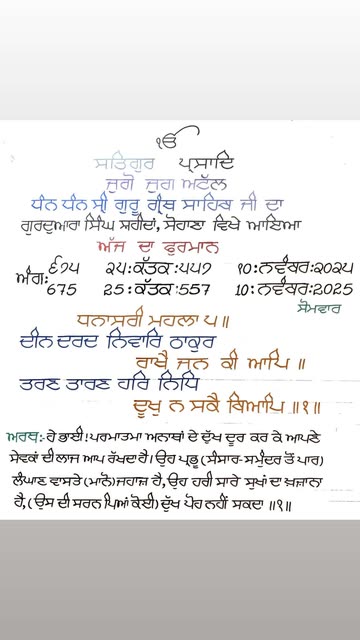 ੴ
ਸਤਿਗੁਰ ਪ੍ਰਸਾਦਿ
ਜੁਗੋ ਜੁਗ ਅਟੱਲ
ਧੰਨ ਧੰਨ ਸ੍ਰੀ ਗੁਰੂ ਗ੍ਰੰਥ ਸਾਹਿਬ ਜੀ ਦਾ
ਗੁਰਦੁਆਰਾ ਸਿੰਘ ਸ਼ਹੀਦਾਂ, ਸੋਹਾਣਾ ਵਿਖੇ ਆਇਆ
ਅੱਜ ਦਾ ਫੁਰਮਾਨ
ਅੰਗ: ੬੭੫ ੨੫:ਕੱਤਕ:੫੫੭ ੧੦:ਨਵੰਬਰ:੨੦੨੫
675 25:ਕੱਤਕ:557 10:ਨਵੰਬਰ:2025
ਸੋਮਵਾਰ
ਧਨਾਸਰੀ ਮਹਲਾ ੫॥
ਦੀਨ ਦਰਦ ਨਿਵਾਰਿ ਠਾਕੁਰ
ਰਾਖੈ ਜਨ ਕੀ ਆਪਿ ॥
ਤਰਣ ਤਾਰਣ ਹਰਿ ਨਿਧਿ
ਦੂਖੁ ਨ ਸਕੈ ਬਿਆਪਿ ॥੧॥
ਅਰਥ:- ਹੇ ਭਾਈ! ਪਰਮਾਤਮਾ ਅਨਾਥਾਂ ਦੇ ਦੁੱਖ ਦੂਰ ਕਰ ਕੇ ਆਪਣੇ
ਸੇਵਕਾਂ ਦੀ ਲਾਜ ਆਪ ਰੱਖਦਾ ਹੈ। ਉਹ ਪ੍ਰਭੂ (ਸੰਸਾਰ-ਸਮੁੰਦਰ ਤੋਂ ਪਾਰ)
ਲੰਘਾਣ ਵਾਸਤੇ (ਮਾਨੋ) ਜਹਾਜ਼ ਹੈ, ਉਹ ਹਰੀ ਸਾਰੇ ਸੁਖਾਂ ਦਾ ਖ਼ਜ਼ਾਨਾ
ਹੈ, (ਉਸ ਦੀ ਸਰਨ ਪਿਆਂ ਕੋਈ) ਦੁੱਖ ਪੋਹ ਨਹੀਂ ਸਕਦਾ ॥੧॥